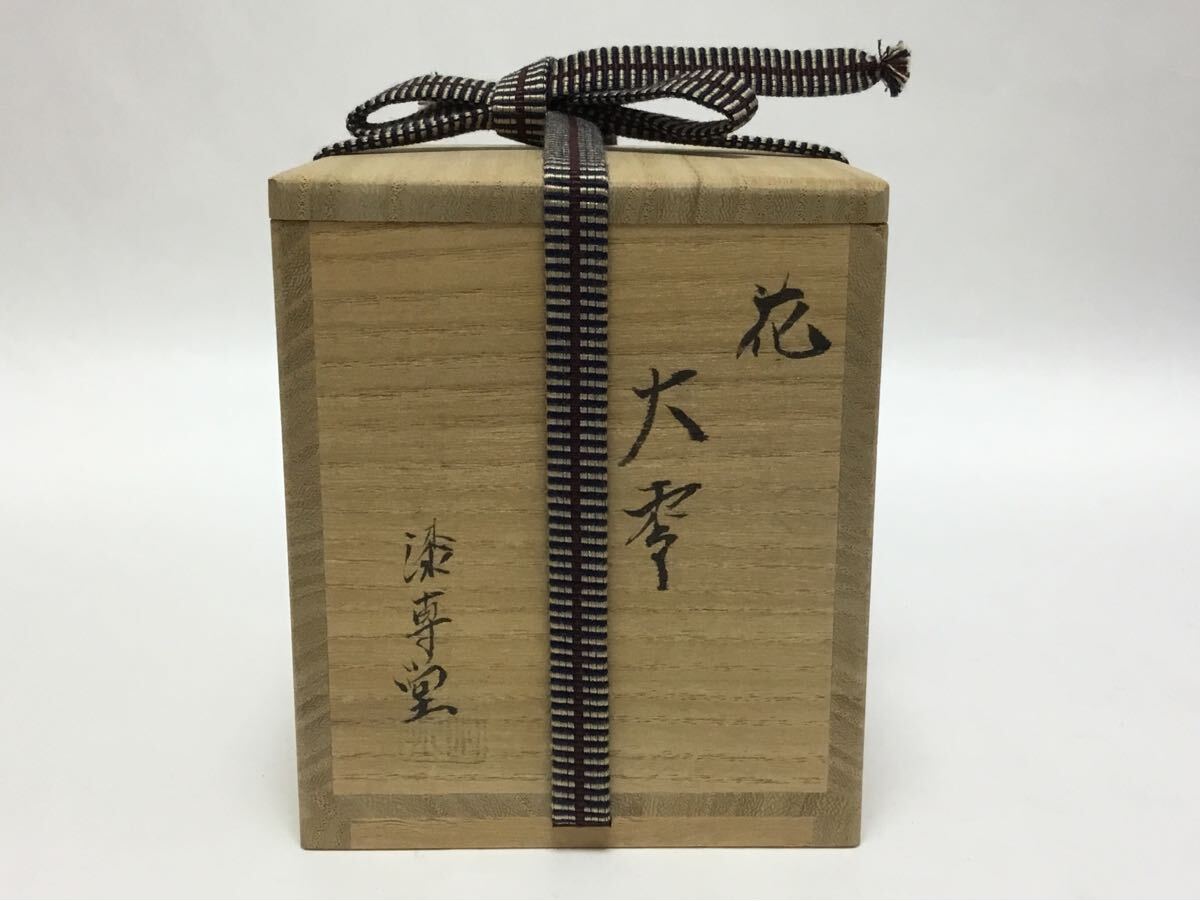 花
大
漆専堂